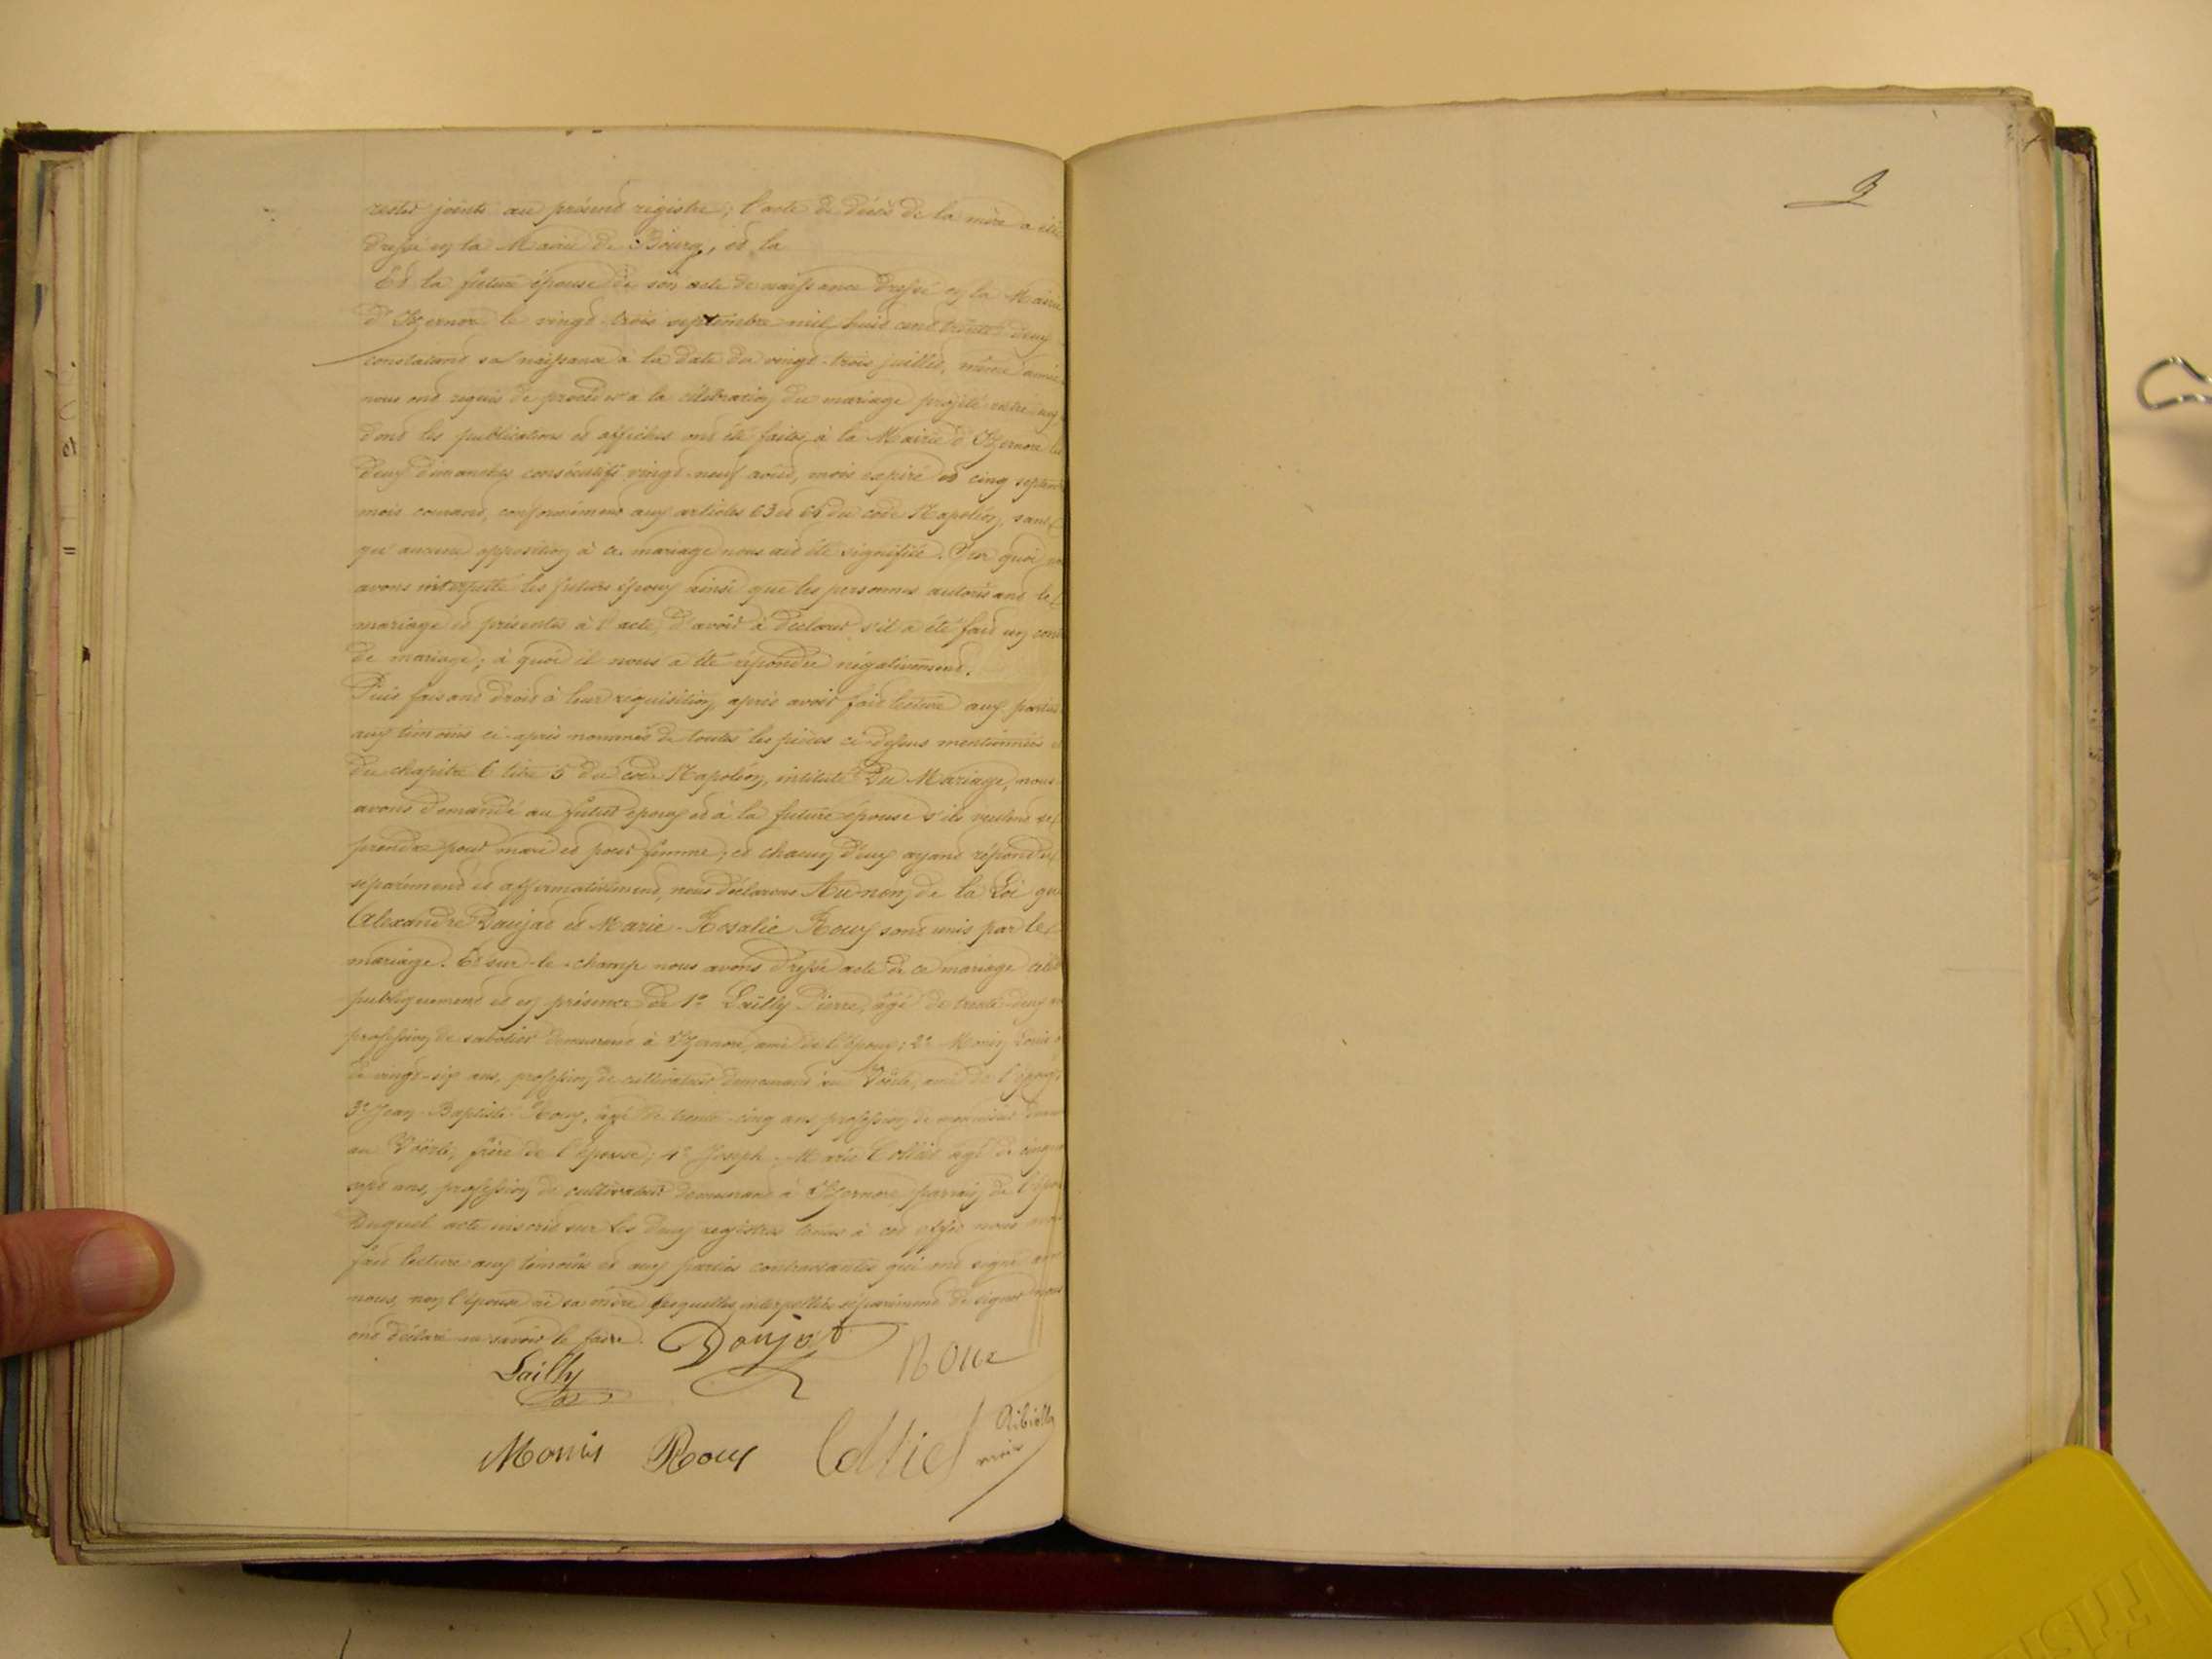 rester joints au présent régistre; l'acte de décès de la mère a été
dressé en la Mairie de Bourg, et la
Et la future épouse de son acte de naissance dressé en la Mairie
d'Izernore le vingt-trois septembre mil huit cent trente deux
constatant sa naissance à la date du vingt-trois juillet, même année
nous ont requis de procéder à la célébration du mariage projeté entre eux
dont les publications et affiches ont été faites à la Mairie d'Izernore les
deux dimanches consécutifs vingt-neuf août, mois expiré et cinq septembre
mois courant, conformément aux articles 63 et 64 du code Napoléon, sans
qu'aucune opposition à ce mariage nous ait été signifiée. Sur quoi
avons interpellé les futurs époux ainsi que les personnes autorisant le
mariage et présentes à l'acte, d'avoir à déclarer s'il a été fait un
de mariage; à quoi il nous a été répondu négativement.
Puis faisant droit à leur réquisition, après avoir fait lecture aux parties
aux témoins ci-après nommés de toutes les pièces ci-dessus mentionnées
du chapitre 6 titre 5 du code Napoléon, intitulé Du Mariage, nous
avons demandé au futur époux et à la future épouse s'ils veulent se
prendre pour mari et pour femme; et chacun d'eux ayant répondu
séparément et affirmativement, nous déclarons Au nom de la Loi que
Alexandre Daujat et Marie-Rosalie Roux sont unis par le
mariage. Et sur-le-champ nous avons dressé acte de ce mariage
publiquement et en présence de 1° Lailly Pierre, âgé de trente-deux
profession de sabotier demeurant à Izernore, ami de l'époux; 2° Monin Louis
de vingt-six ans, profession de cultivateur demeurant au Voërle, ami de l'époux
3° Jean-Baptiste Roux, âgé de trente-cinq ans, profession de menuisier
au Voërle, frère de l'épouse; 4° Joseph-Marie Colliet âgé de
sept ans, profession de cultivateur demeurant à Izernore, parrain de
Duquel acte inscrit sur les deux registres tenus à cet effet nous
fait lecture aux témoins et aux parties contractantes qui ont signé
nous, non l'épouse ni sa mère lesquelles interpellées séparément de signer
ont déclaré ne savoir le faire. Doujat
Lailly Roue
Monin Roux Colliet